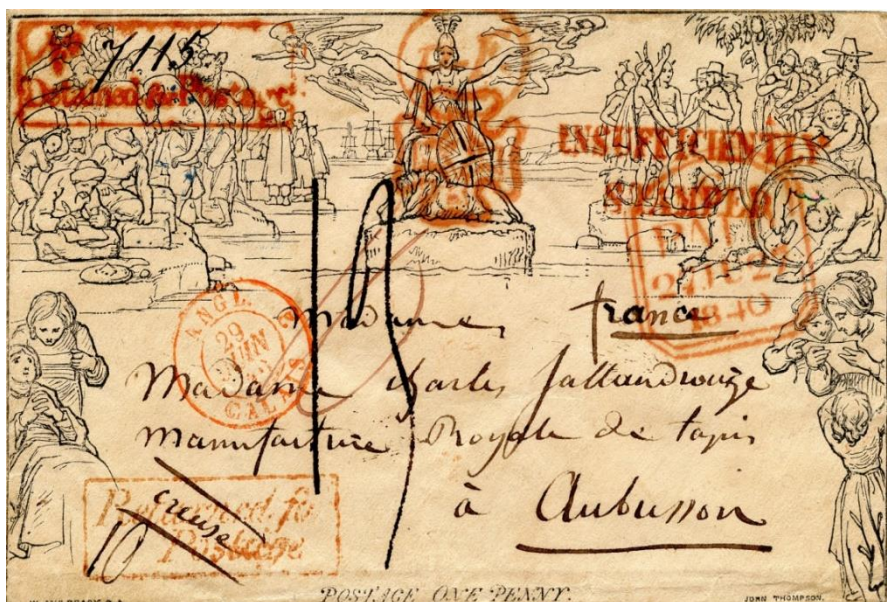 7115
Detained for Postage
INSUFFICIENTLY
STAMPED
PAID
1840
ANGL.
29
JUIN
CALAIS
Madame, france
Madame Charles Sallandrouze
Manufacture Royale de tapis
à Aubusson
Creuse
Returned for
Postage
10
POSTAGE ONE PENNY.
JOHN THOMPSON.